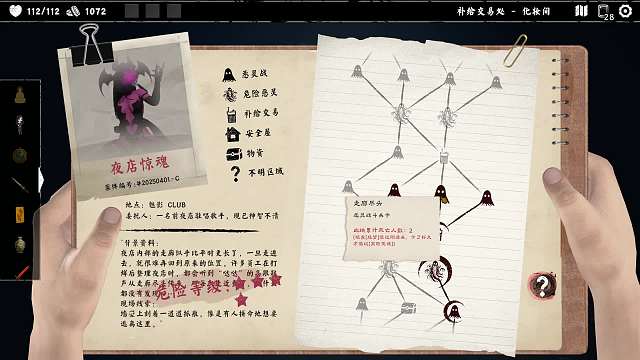 112/112
1072
补给交易处 - 化妆间
28
恶灵战
危险恶灵
补给交易
安全屋
物资
不明区域
夜店惊魂
案件编号:#20250401-C
地点: 魅影 CLUB
委托人: 一名前夜店驻唱歌手, 现已神智不清
背景资料:
夜店内部的走廊似乎比平时更长了, 一旦走进
去, 就很难再回到原来的位置, 许多员工在打
烊后整理夜店时, 都会听到"哒哒"的高跟鞋
声从走廊尽
都没有发现
现场线索:
墙壁上刻着一道道抓痕, 像是有人拼命地想要
逃离这里。
危险等级:
走廊尽头
恶灵战斗
此地累计死亡人数: 2
?